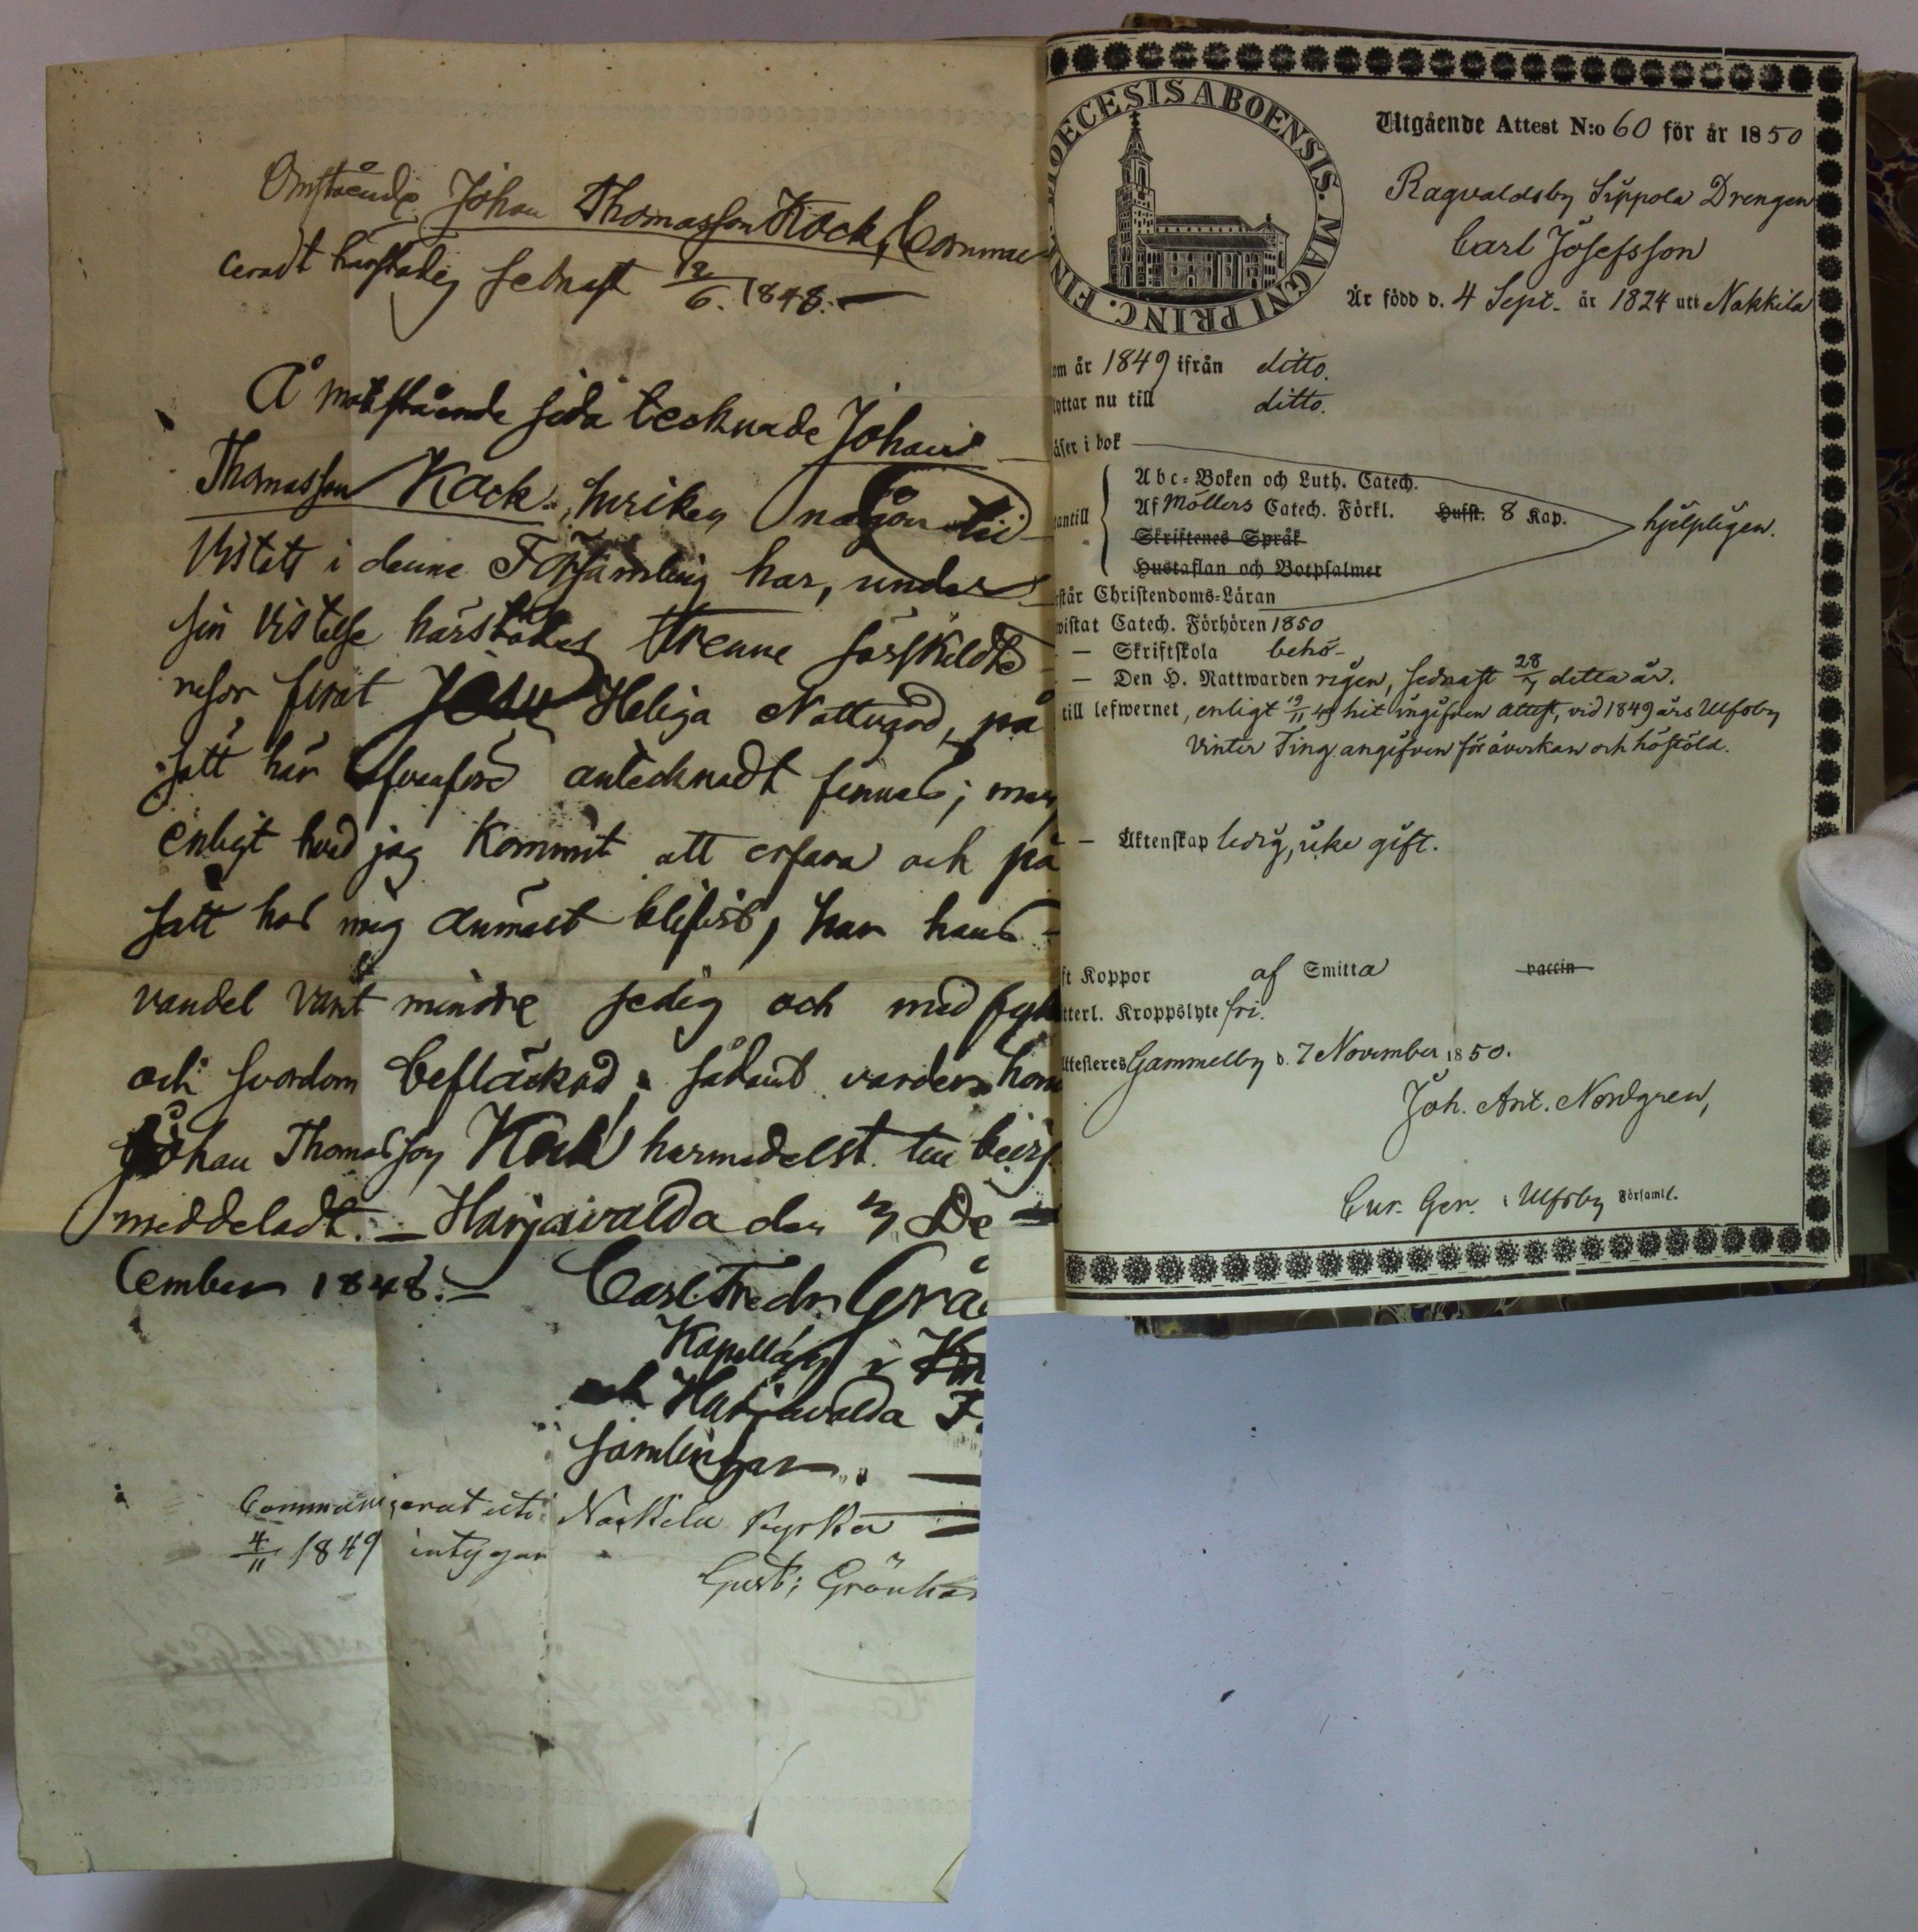 Omstående Johan Thomasson Kock, Commu-
ceradt härstädes sednast 12/6. 1848.
Å motstående sida tecknade Johan
Thomasson Kock, hvilken någon tid
vistats i denne Församling har, under
sin vistelse härstädes trenne särskildte
resor firat Jesu Heliga Nattvard, på
sätt här ofvanföre antecknadt finnes; men
enligt hvad jag kommit att erfara och på
sätt hos mig anmält blifvit, har hans
vandel varit mindre sedig och med fyll
och svordom befläckad; sådant varder hon
Johan Thomasson Kock härmedelst till bevis
meddeladt. Harjavalda den 7 De-
cember 1848.
Carl Fredr. Grå
Kapellan i
och Harjavalda F
samlingar.
Communicerat uti Nackila kyrka
4/11 1849 intygar
Gust: Grönha
DIOECESIS ABOENSIS. MAGNI PRINC. FIN
Utgående Attest N:o 60 för år 1850
Ragvaldsby Sippola Drengen
Carl Josefsson
Är född d. 4 Sept. år 1824 uti Nakkila
om år 1849 ifrån ditto.
lyttar nu till ditto.
äser i bok
antill
Abc-Boken och Luth. Catech.
Af Möllers Catech. Förkl. Hufst. 8 Kap. hjelpligen.
Skriftenes Språk
Hustaflan och Botpsalmer
står Christendoms-Läran
wistat Catech. Förhören 1850
— Skriftskola behö-
— Den H. Nattwarden rigen, sednast 28/7 detta år.
till lefwernet, enligt 19/11 49 hit ingifven attest, vid 1849 års Ulfsby
Vinter Ting angifven för åverkan och höstöld.
— Äktenskap ledig, icke gift.
ft Koppor af Smitta vaccin
tterl. Kroppslyte fri.
ttesteres Gammelby d. 7 November 1850.
Joh. Ant. Nordgren,
Cur. Ger. i Ulfsby Församl.